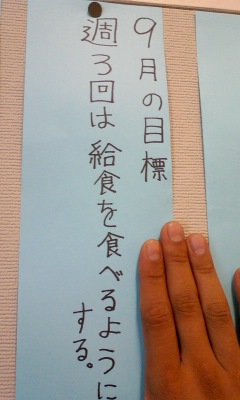 9月の目標
週3回は給食を食べるように
する。